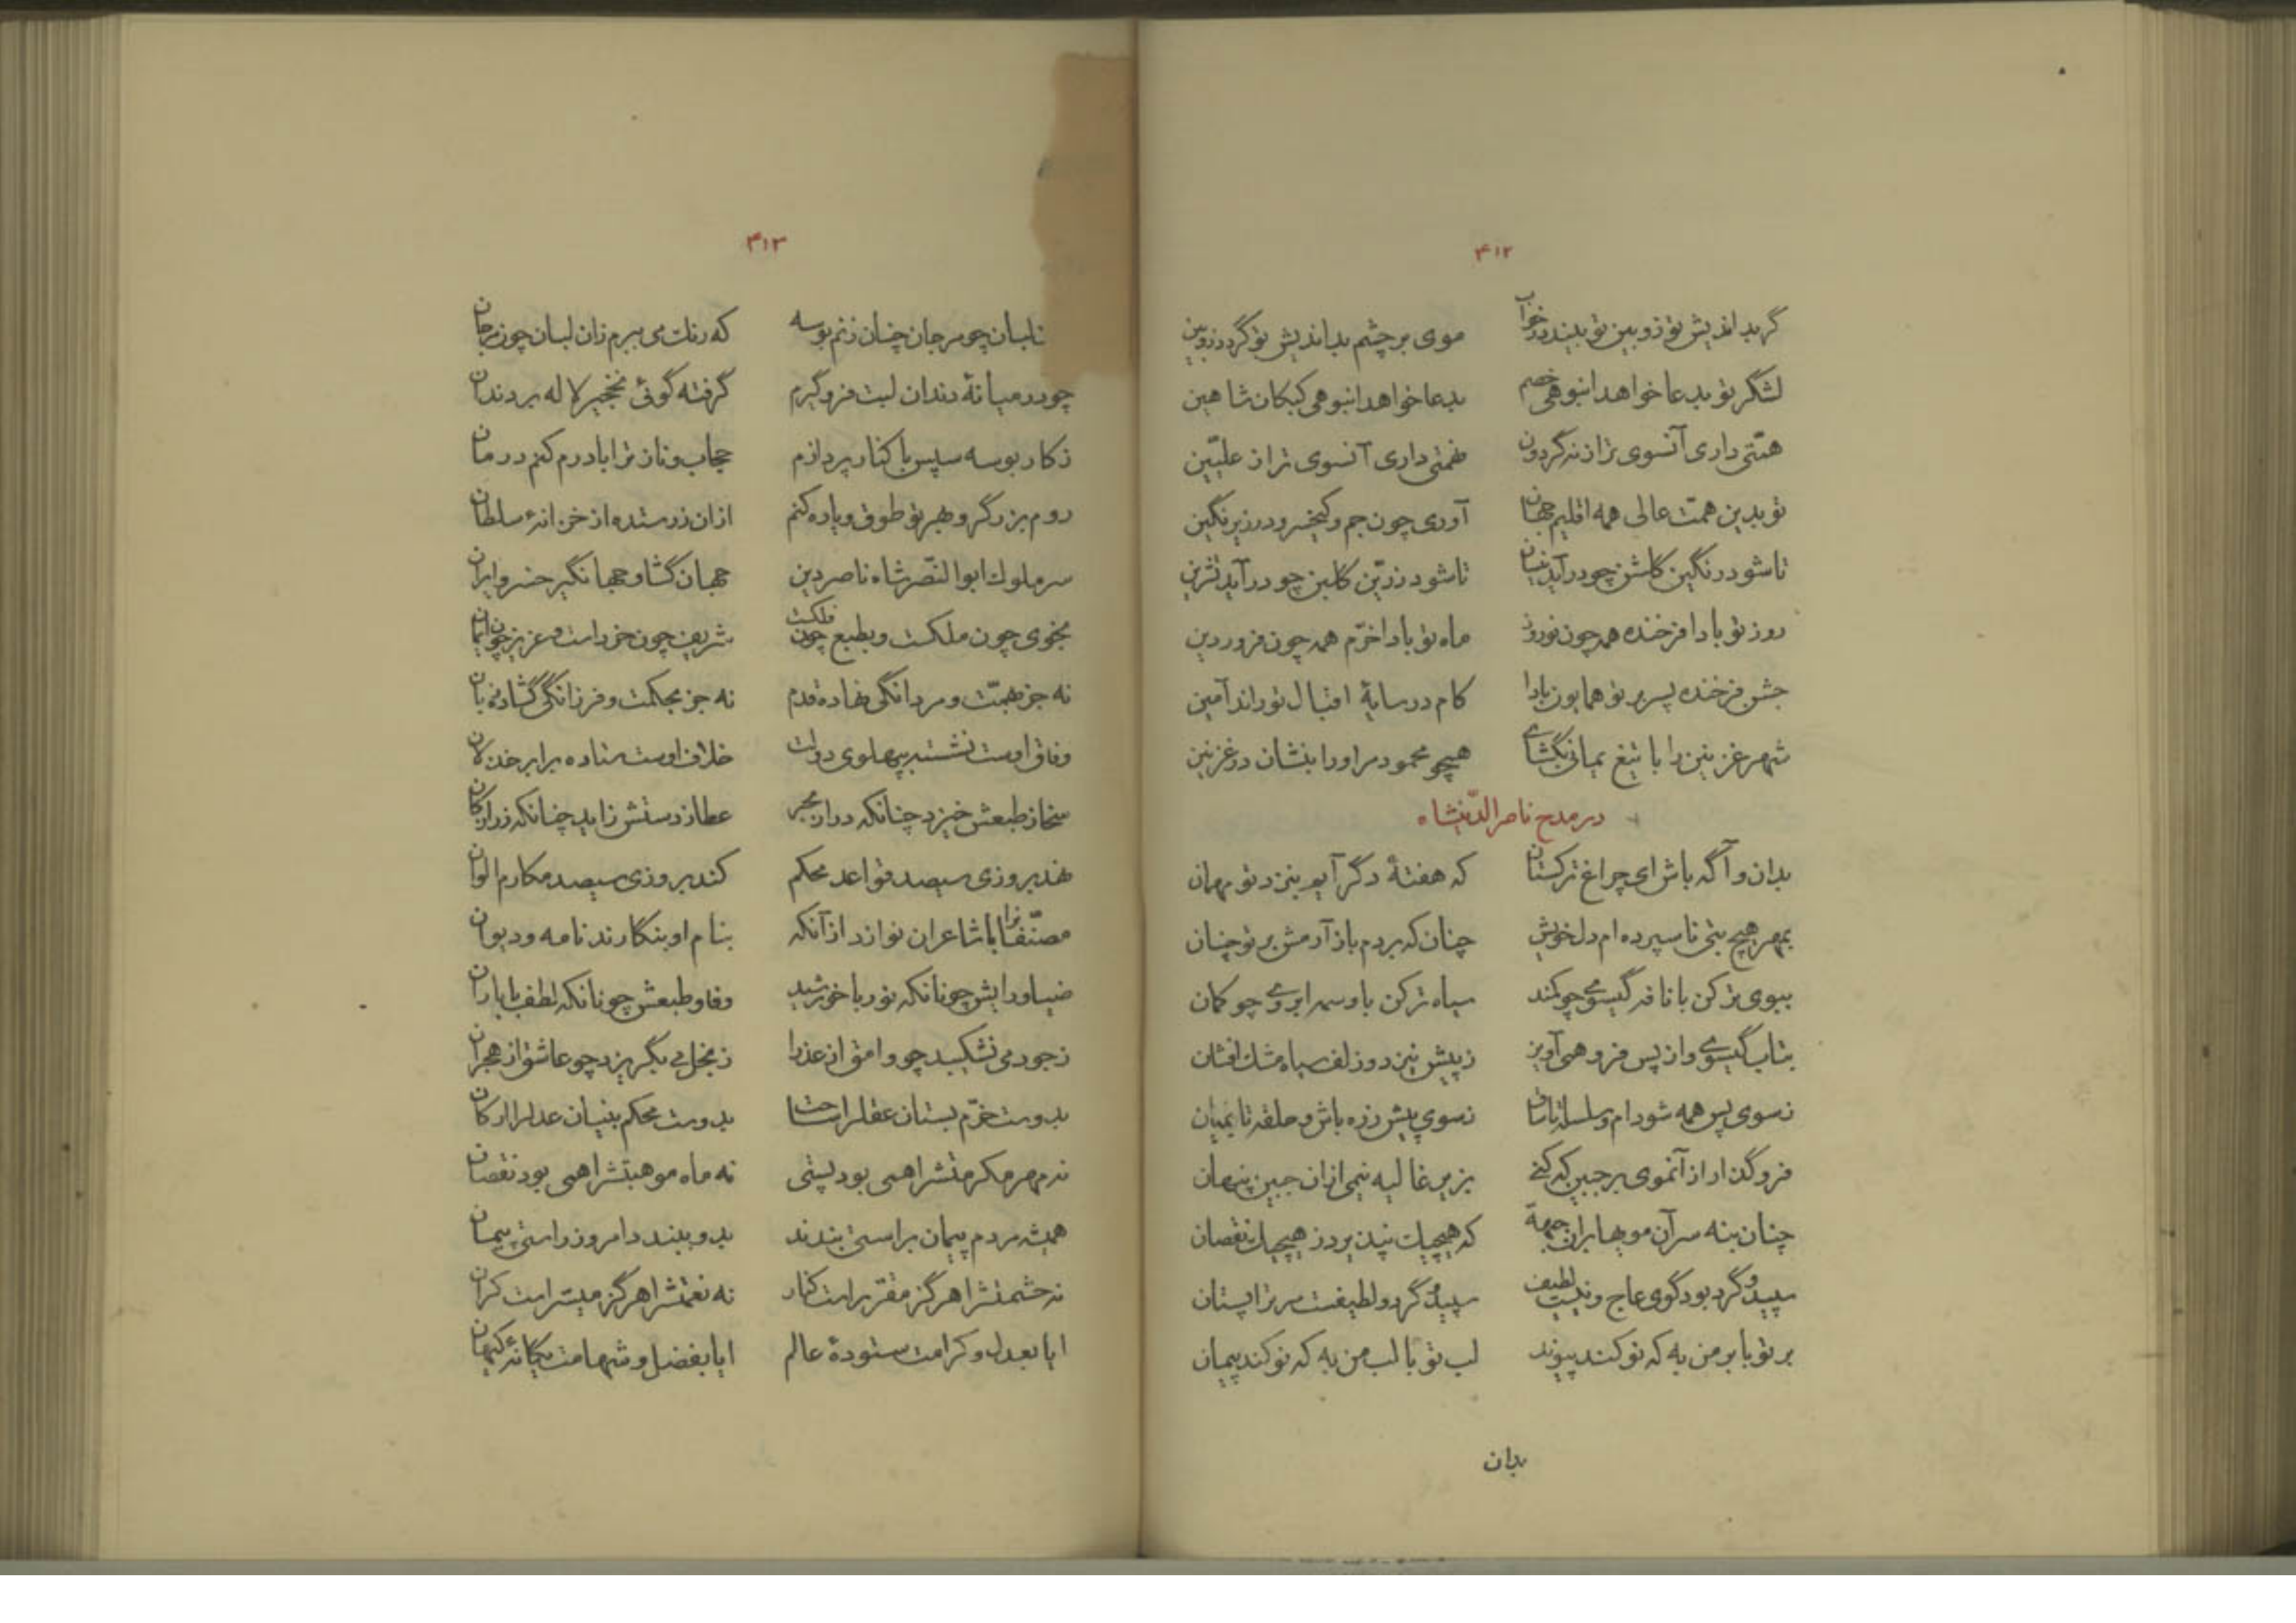 ۴۱۲
گر بداندیش تو زوبین تو بیند در خواب موی بر چشم بداندیش تو گردد زوبین
لشگر تو بدعا خواهد انبوهی خصم بدعا خواهد انبوهی کبکان شاهین
همتی داری آنسوی تر از نه گردون نعمتی داری آنسوی تر از علیّین
تو بدین همّت عالی همه اقلیم جهان آوری چون جم و کیخسرو در زیر نگین
تا شود رنگین گلشن چو درآید نیسان تا شود زرّین گلبن چو درآید تشرین
روز تو بادا فرخنده همه چون نوروز ماه تو بادا خرّم همه چون فروردین
جشن فرخنده پسر بر تو همایون بادا کام در سایهٔ اقبال تو راند آمین
شهر غزنین را با تیغ یمانی بگشای همچو محمود مر او را بنشان در غزنین
در مدح ناصرالدّینشاه
بدان و آگه باش ای چراغ ترکستان که هفتهٔ دگر آیم بنزد تو مهمان
بمهر هیچ بتی نا سپرده‌ام دل خویش چنان که بردم باز آرمش بر تو چنان
ببوی تر کن با نافه گیسوی چو کمند سیاه تر کن با وسمه ابروی چو کمان
بتاب گیسوی و از پس فرو همی آویز ز پیش نیز دو زلف سیاه مشک افشان
ز سوی پس همه شو دام و سلسله تا ساق ز سوی پیش زره باش و حلقه تا بمیان
فرو گذار از آنموی بر جبین که کنی بزیر غالیه نیمی ازان جبین پنهان
چنان بنه سر آن مویها بران جبهة که هیچیک نپذیرد ز هیچیک نقصان
سپید و گرد بود گوی عاج و نیست لطیف سپید و گرد و لطیفست مر ترا پستان
بر تو با بر من به که نو کند پیوند لب تو با لب من به که نو کند پیمان
بدان
۴۱۳
لبان چو مرجان چنان زنم بوسه که رنگ می ببرم زان لبان چون مرجان
چو در میانهٔ دندان لبت فرو گیرم گرفته گوئی نخجیر لاله بر دندان
ز کار بوسه سپس با کنار پردازم حجاب و ناز ترا با درم کنم درمان
روم بزرگر و بهر تو طوق و یاره کنم ازان زر ستده از خزانهٔ سلطان
سر ملوک ابوالنّصر شاه ناصر دین جهان گشا و جهانگیر خسرو ایران
بخوی چون ملکست و بطبع چون فلکست شریف چون خردست و عزیز چون ایمان
نه جز بهمّت و مردانگی نهاده قدم نه جز بحکمت و فرزانگی گشاده زبان
وفاق اوست نشسته بپهلوی دولت خلاف اوست ستاده برابر خذلان
سخا ز طبعش خیزد چنانکه در از بحر عطا ز دستش زاید چنانکه زر از کان
نهد بروزی سیصد قواعد محکم کند بروزی سیصد مکارم الوان
مصنّفانرا با شاعران نوازد از آنکه بنام او بنگارند نامه و دیوان
ضیا و رایش چونانکه نور با خورشید وفا و طبعش چونانکه لطف با باران
ز جود می نشکیبد چو وامق از عذرا ز بخل می بگریزد چو عاشق از هجران
بدوست خرّم بستان عقل را ساحت بدوست محکم بنیان عدل را ارکان
نه مهر مکرمتشرا همی بود پستی نه ماه موهبتشرا همی بود نقصان
همیشه مردم پیمان براستی بندند بدو ببندد امروز راستی پیمان
نه حشمتشرا هرگز مقرّرست کنار نه نعمتشرا هرگز میسّرست کران
ایا بعدل و کرامت ستودهٔ عالم ایا بفضل و شهامت یگانهٔ کیهان